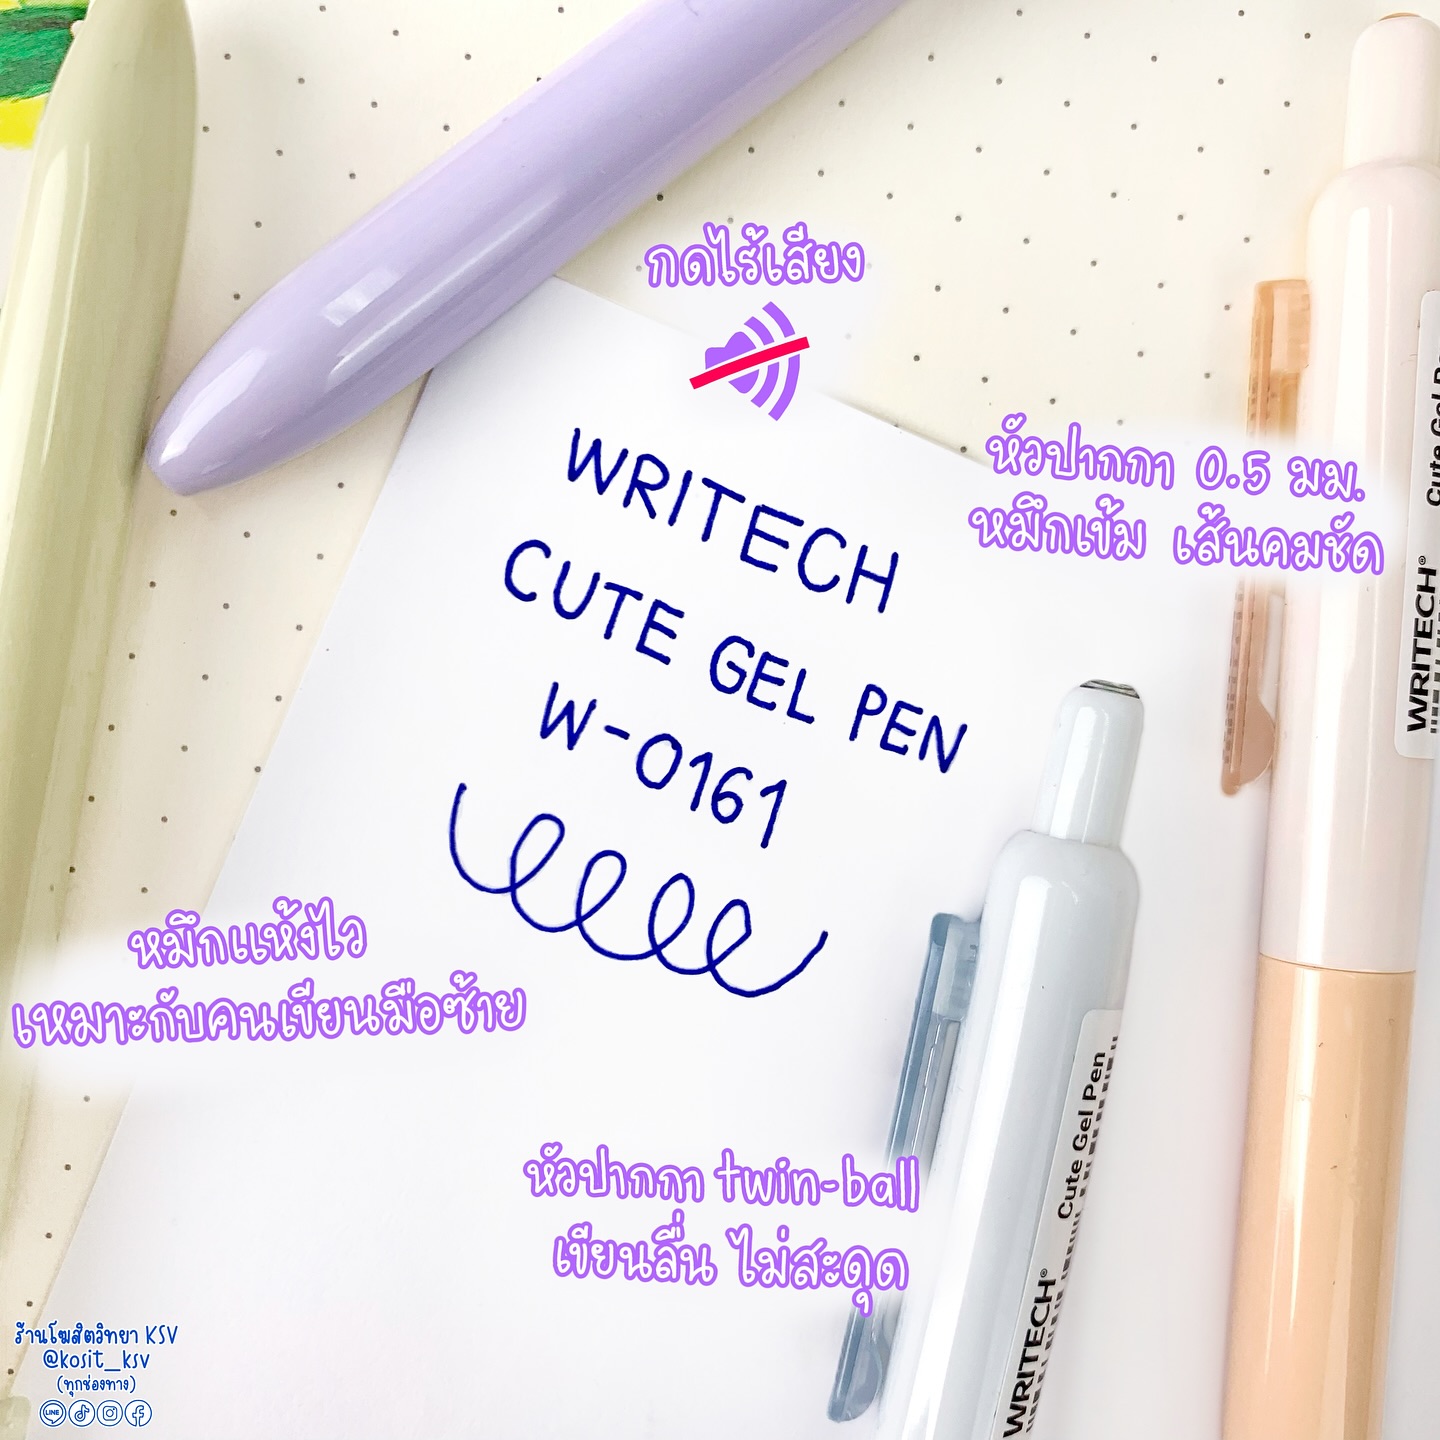 กดไร้เสียง
WRITECH
CUTE GEL PEN
W-0161
หัวปากกา 0.5 มม.
หมึกเข้ม เส้นคมชัด
Cute Gel
WRITECH®
หมึกแห้งไว
เหมาะกับคนเขียนมือซ้าย
หัวปากกา twin-ball
เขียนลื่น ไม่สะดุด
Cute Gel Pen
WRITECH®
ร้านโฆสิตวิทยา KSV
@kosit_ksv
(ทุกช่องทาง)
LINE